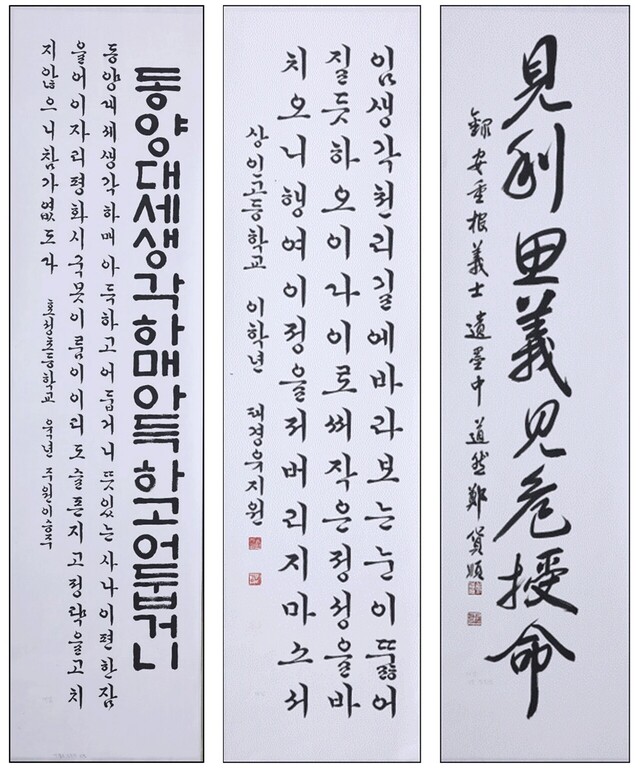 동양대세생각하매아득하고어둡거니
동양대세생각하매아득하고어둡거니뜻있는사나이편한잠
을어이자리평화시국못이룸이이리도슬픈지고정략을고치
지않으니참가엾도다 초등학교 육학년 주원이승주
임생각천리길에바라보는눈이뚫어
질듯하오이다이로써작은정성을바
치오니행여이정을저버리지마소서
상인고등학교 이학년 태경육지원
見利思義見危授命
錄安重根義士遺墨中 道然鄭